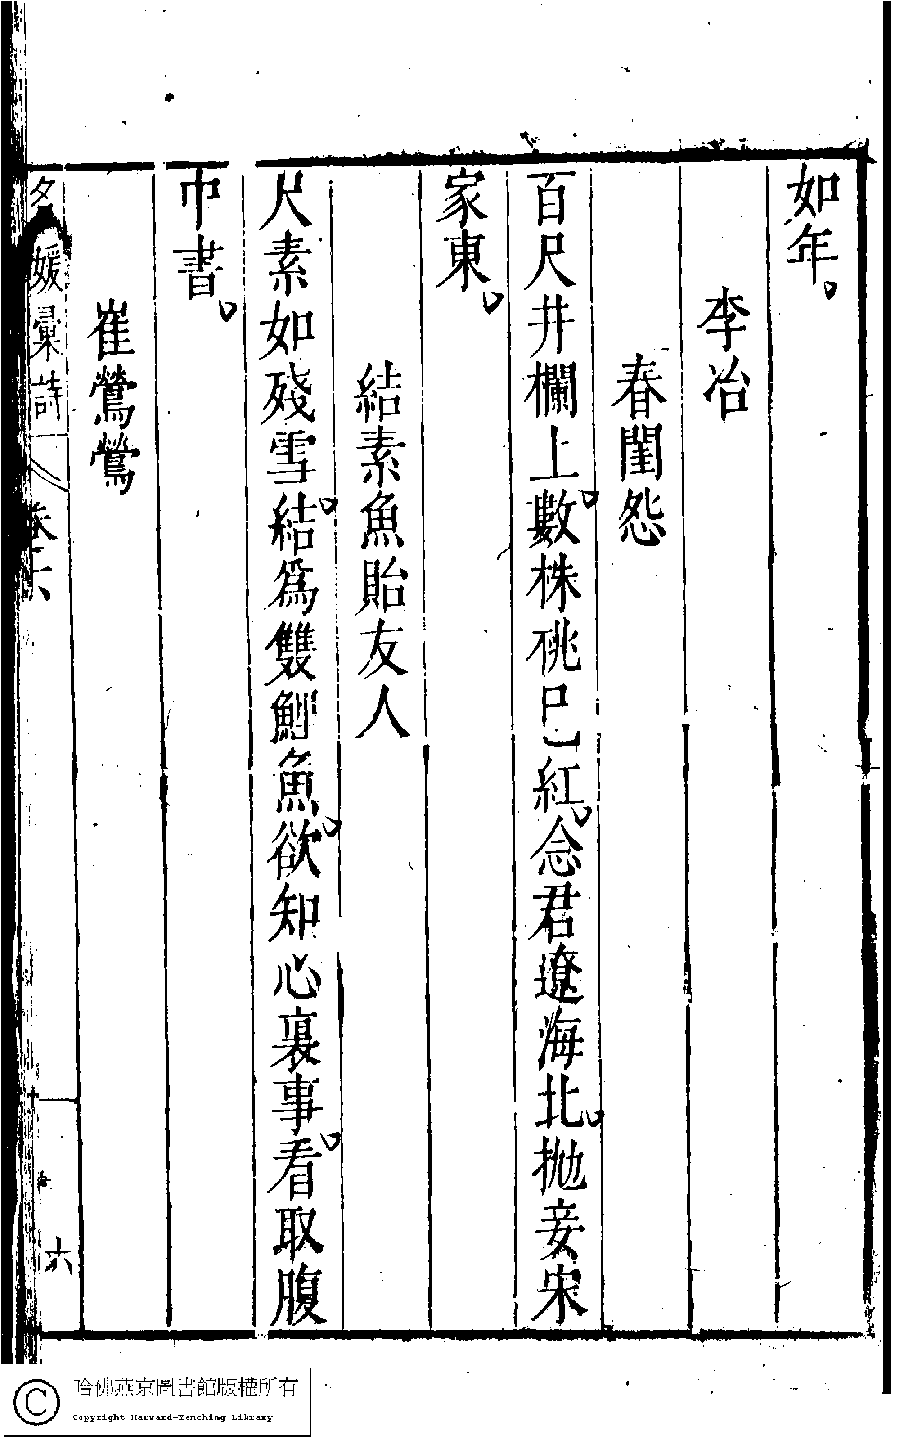 如年。
李冶
春閨怨
百尺井欄上。數株桃已紅。念君遼海北。拋妾宋
家東。
結素魚貽友人
尺素如殘雪。結爲雙鯉魚。欲知心裏事。看取腹
中書。
崔鶯鶯
名媛彙詩 卷六 六
哈佛燕京圖書館版權所有
Copyright Harvard-Yenching Library